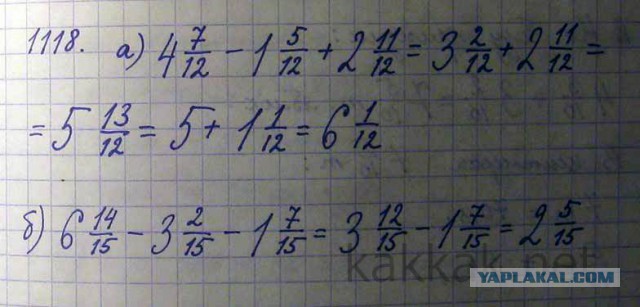 1118. а) 4 7/12 - 1 5/12 + 2 11/12 = 3 2/12 + 2 11/12 =
= 5 13/12 = 5 + 1 1/12 = 6 1/12
б) 6 14/15 - 3 2/15 - 1 7/15 = 3 12/15 - 1 7/15 = 2 5/15
kakkak.net
YAPLAKAL.COM